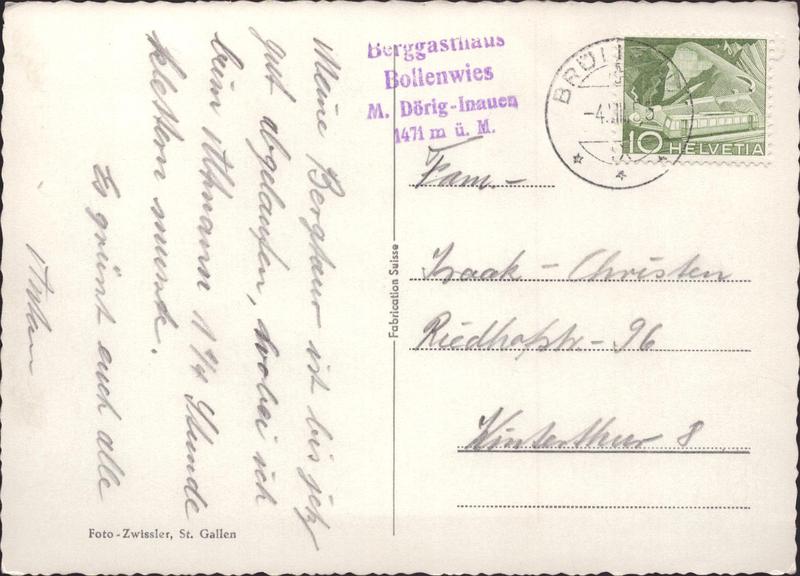 Meine Bergtour ist bis jetz
gut abgelaufen, wobei ich
beim 1 1/4 Stunde
klettern musste.
Es grüsst euch alle
Berggasthaus
Bollenwies
M. Dörig-Inauen
1471 m ü. M.
BRÜL
-4.VIII.55
10 HELVETIA
Fam.-
Isaak - Christen
Riedhofstr - 96
Winterthur 8
Fabrication Suisse
Foto-Zwissler, St. Gallen